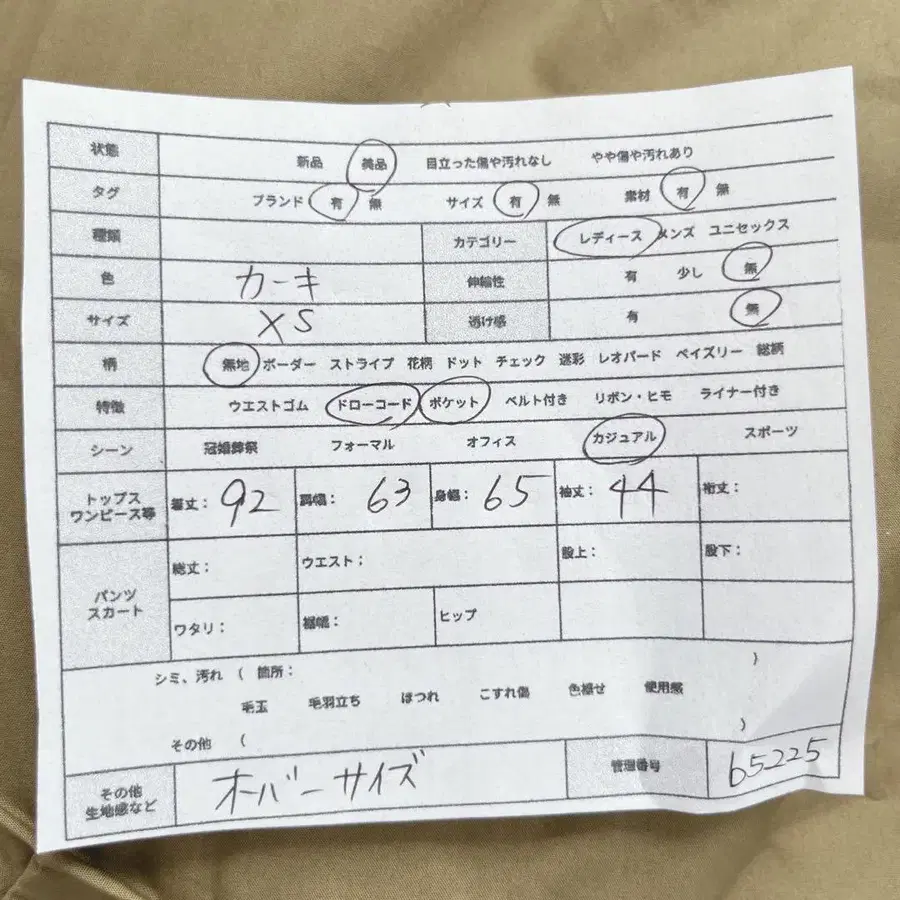 状態 新品 美品 目立った傷や汚れなし やや傷や汚れあり
タグ ブランド 有 無 サイズ 有 無 素材 有 無
種類 カテゴリー レディース メンズ ユニセックス
色 カーキ 伸縮性 有 少し 無
サイズ XS 透け感 有 無
柄 無地 ボーダー ストライプ 花柄 ドット チェック 迷彩 レオパード ペイズリー 総柄
特徴 ウエストゴム ドローコード ポケット ベルト付き リボン・ヒモ ライナー付き
シーン 冠婚葬祭 フォーマル オフィス カジュアル スポーツ
トップス
ワンピース等
着丈: 92 肩幅: 63 身幅: 65 袖丈: 44 裄丈:
パンツ
スカート
総丈: ウエスト: 股上: 股下:
ワタリ: 裾幅: ヒップ
シミ、汚れ ( 箇所: )
毛玉 毛羽立ち ほつれ こすれ傷 色褪せ 使用感
その他 ( )
その他
生地感など
オーバーサイズ 管理番号 65225